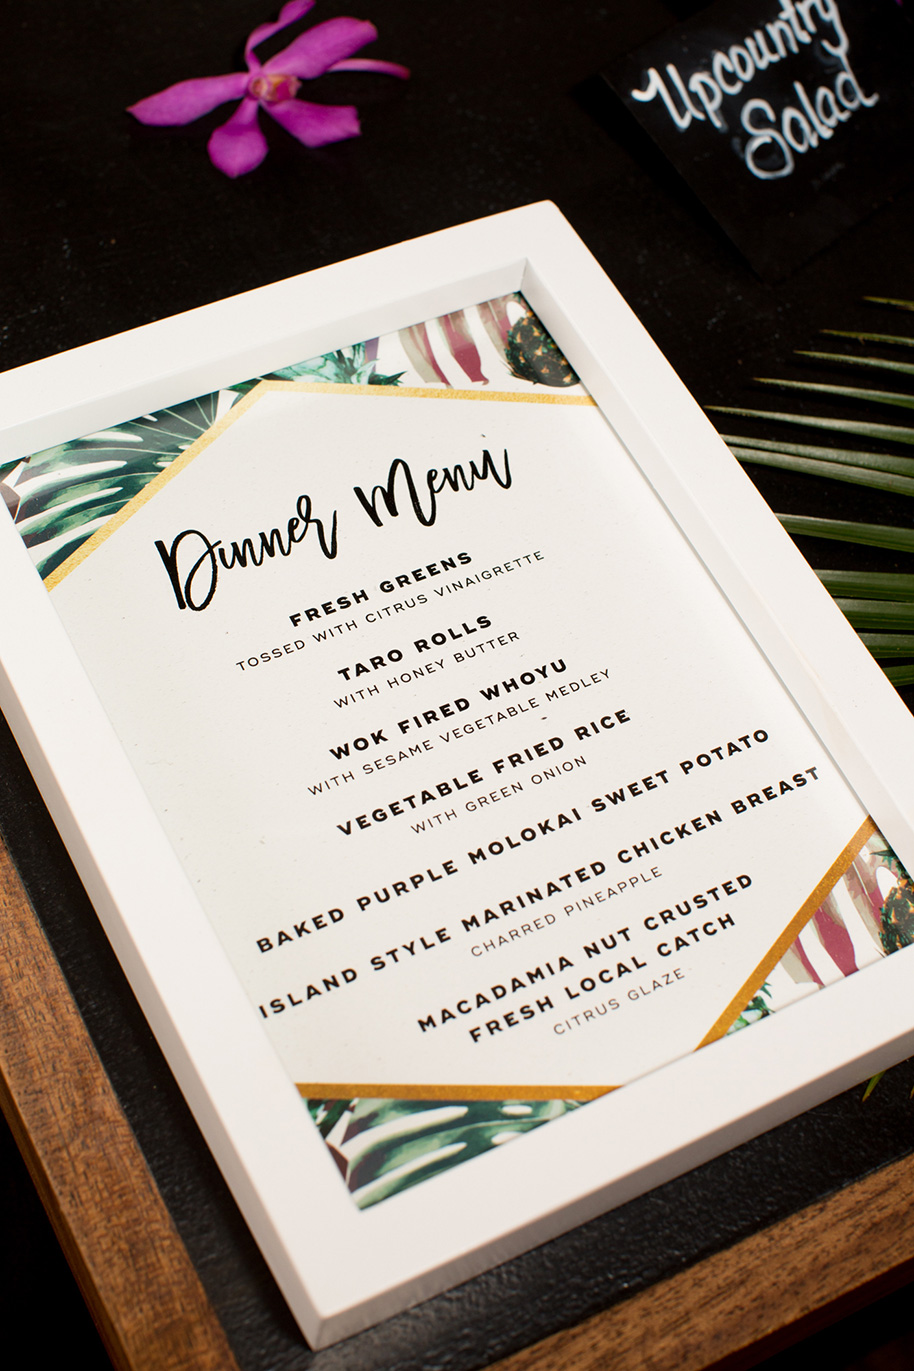 Upcountry
Salad
Dinner Menu
FRESH GREENS
TOSSED WITH CITRUS VINAIGRETTE
TARO ROLLS
WITH HONEY BUTTER
WOK FIRED WHOYU
WITH SESAME VEGETABLE MEDLEY
VEGETABLE FRIED RICE
WITH GREEN ONION
BAKED PURPLE MOLOKAI SWEET POTATO
ISLAND STYLE MARINATED CHICKEN BREAST
CHARRED PINEAPPLE
MACADAMIA NUT CRUSTED
FRESH LOCAL CATCH
CITRUS GLAZE